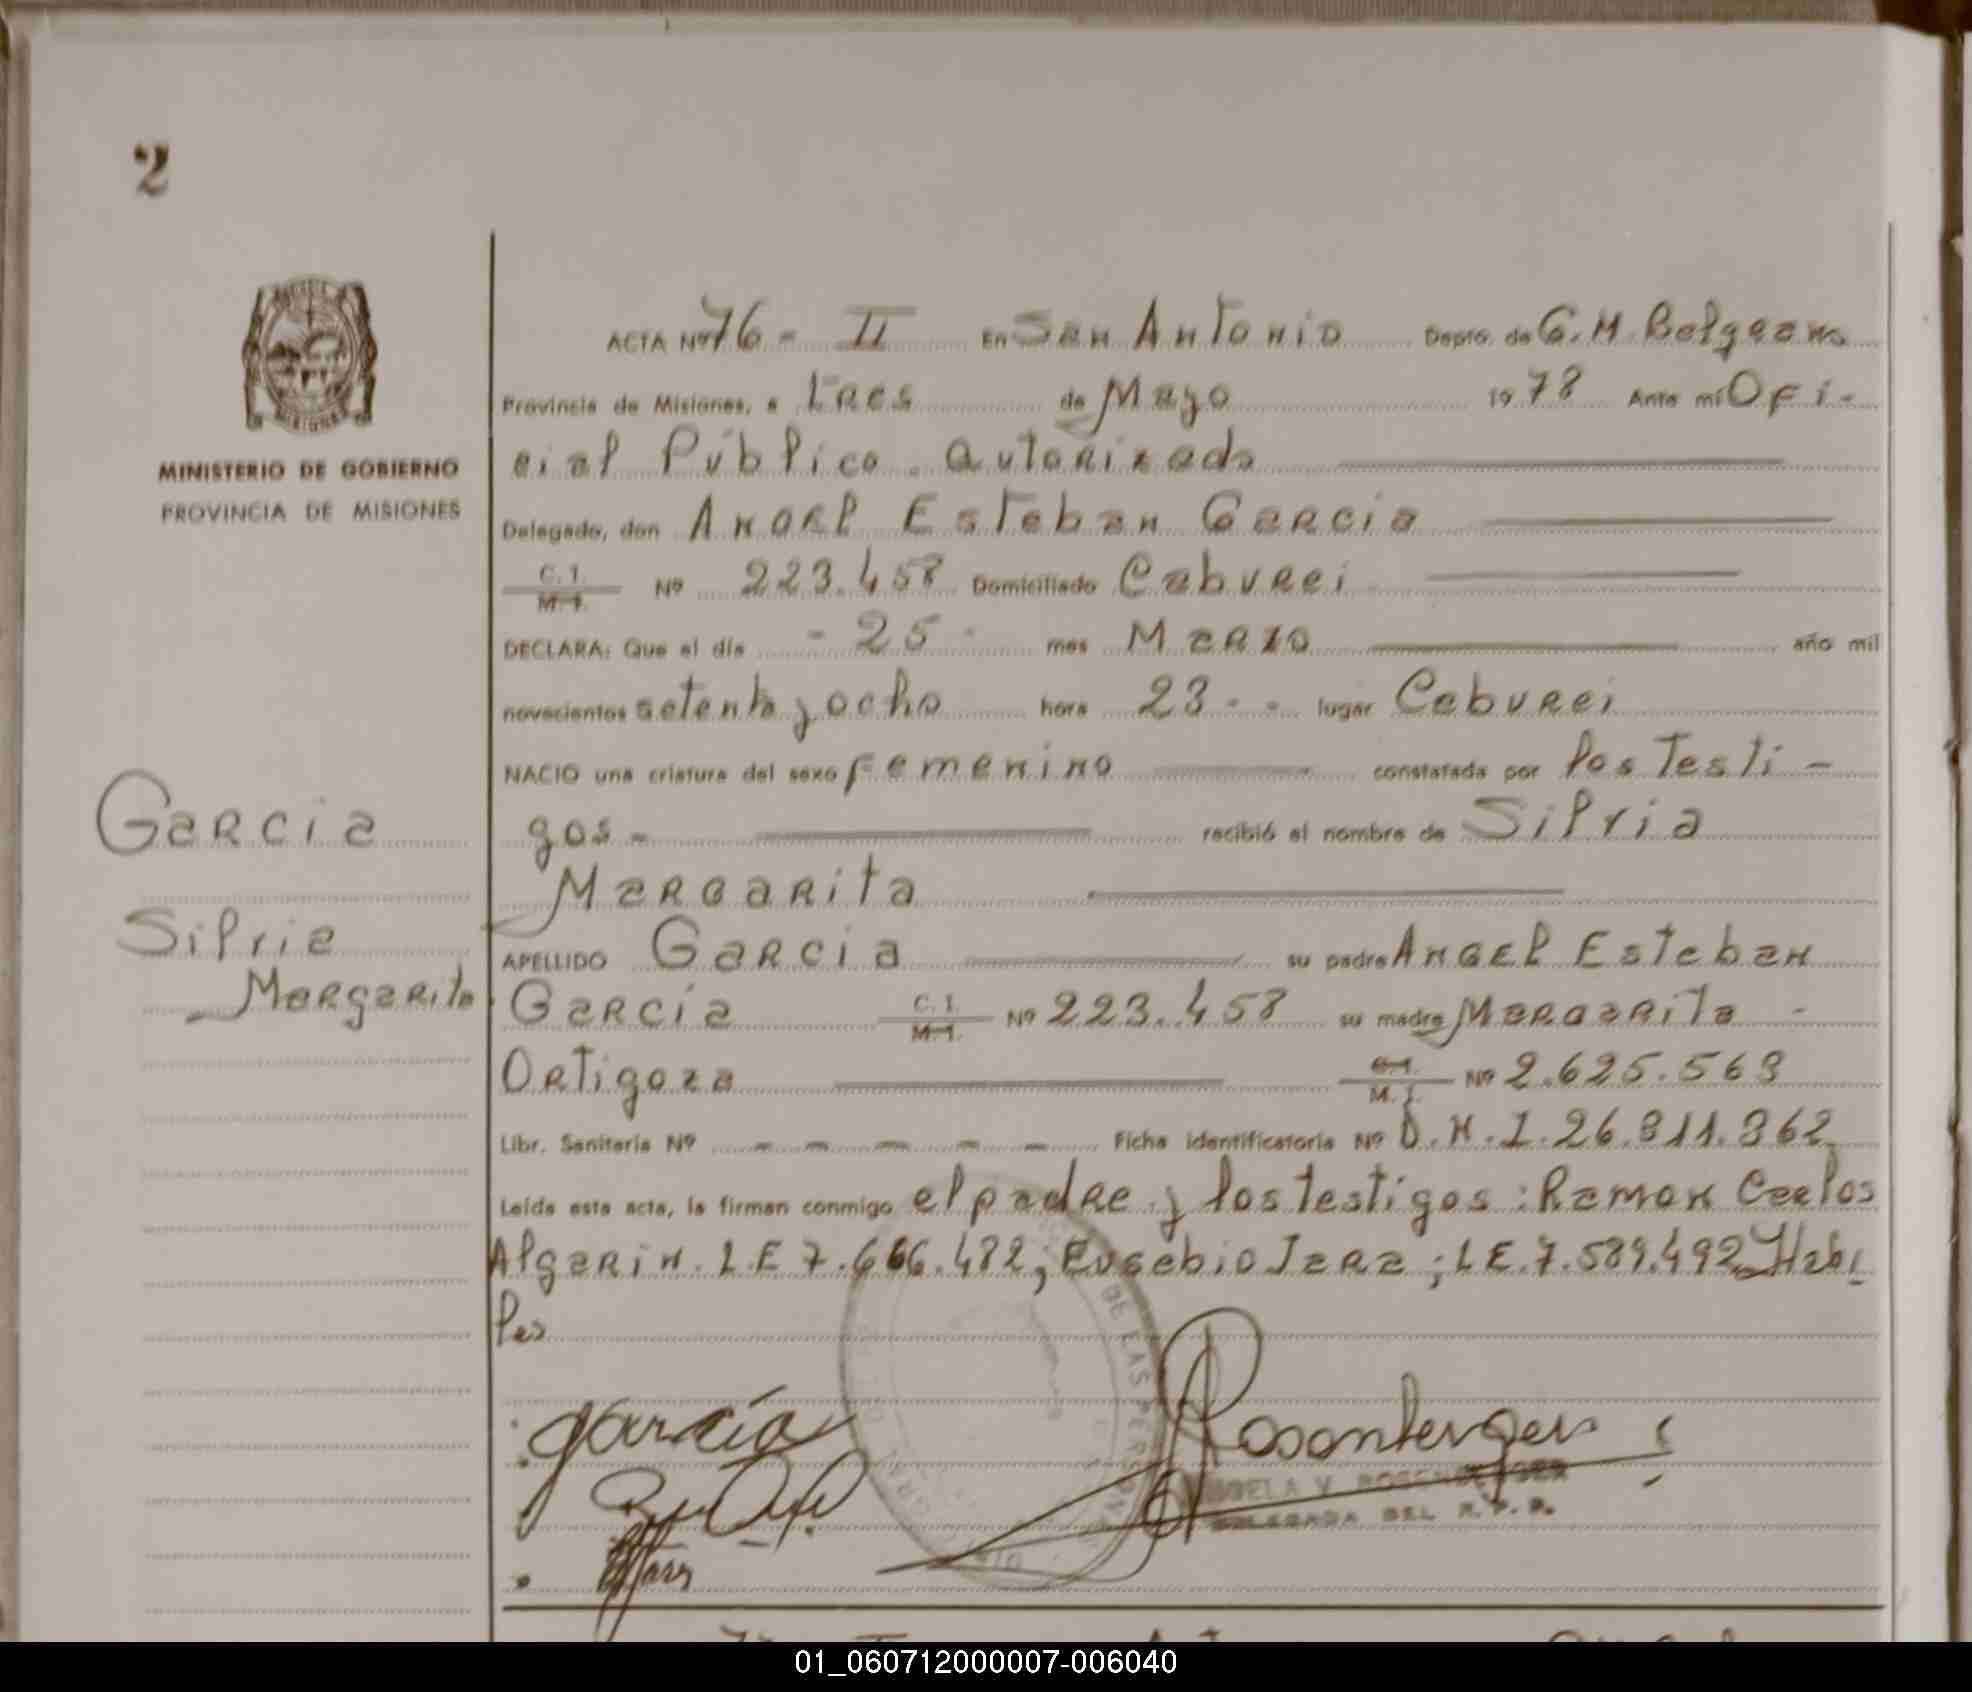 2
MINISTERIO DE GOBIERNO
PROVINCIA DE MISIONES
García
Silvia
Margarita
ACTA Nº 76 - II En San Antonio Depto. de G. M. Belgrano
Provincia de Misiones, a tres de Mayo 1978 Ante mi Ofi-
cial Público Autorizado
Delegado, don Angel Esteban García
C. I. M. I. Nº 223.458 Domiciliado Caburei
DECLARA: Que el día - 25 - mes Marzo año mil
novecientos setenta y ocho hora 23 - - lugar Caburei
NACIO una criatura del sexo femenino constatada por los testi-
gos - recibió el nombre de Silvia
Margarita
APELLIDO García su padre Angel Esteban
García C. I. M. I. Nº 223.458 su madre Margarita -
Ortigoza C. I. M. I. Nº 2.625.569
Libr. Sanitaria Nº - - - - - Ficha identificatoria Nº D.N.I. 26.811.862
Leída esta acta, la firman conmigo el padre y los testigos: Ramon Carlos
Algarin. L.E 7.666.482; Eusebio Jara; LE. 7.589.492 Habi
les
García
Rosenberger
DELEGADA DEL R. P. P.
DE LAS PERSONAS
01_060712000007-006040